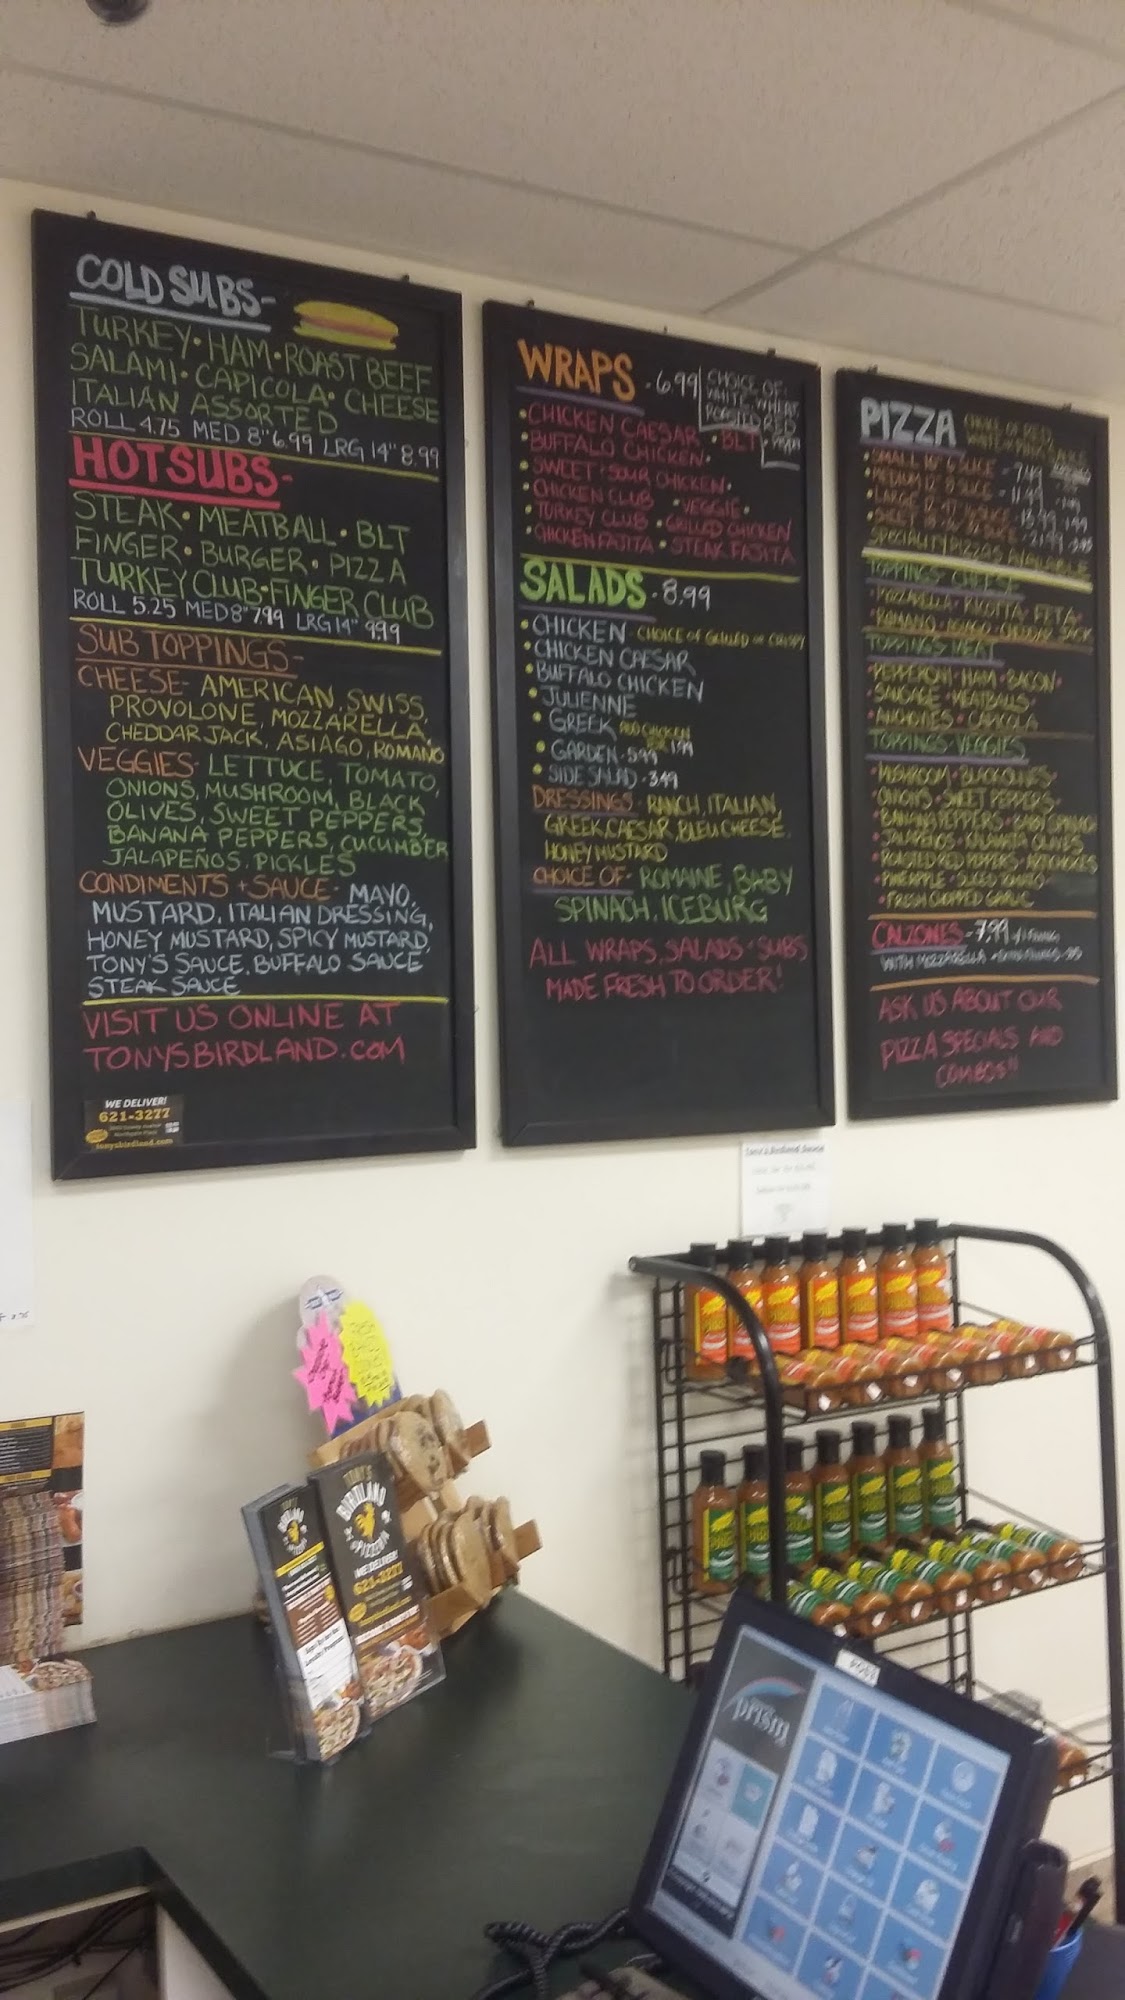 COLD SUBS-
TURKEY • HAM • ROAST BEEF
SALAMI • CAPICOLA • CHEESE
ITALIAN ASSORTED
ROLL 4.75 MED 8" 6.99 LRG 14" 8.99
HOT SUBS-
STEAK • MEATBALL • BLT
FINGER • BURGER • PIZZA
TURKEY CLUB • FINGER CLUB
ROLL 5.25 MED 8" 7.99 LRG 14" 9.99
SUB TOPPINGS-
CHEESE- AMERICAN, SWISS,
PROVOLONE, MOZZARELLA,
CHEDDAR JACK, ASIAGO, ROMANO
VEGGIES- LETTUCE, TOMATO,
ONIONS, MUSHROOM, BLACK
OLIVES, SWEET PEPPERS,
BANANA PEPPERS, CUCUMBER
JALAPEÑOS, PICKLES
CONDIMENTS + SAUCE- MAYO,
MUSTARD, ITALIAN DRESSING,
HONEY MUSTARD, SPICY MUSTARD,
TONY'S SAUCE, BUFFALO SAUCE
STEAK SAUCE
VISIT US ONLINE AT
TONYSBIRDLAND.COM
WE DELIVER!
621-3277
tonysbirdland.com
WRAPS - 6.99
CHOICE OF-
WHITE, WHEAT,
ROASTED RED
• CHICKEN CAESAR • BLT
• BUFFALO CHICKEN •
• SWEET + SOUR CHICKEN •
• CHICKEN CLUB • VEGGIE •
• TURKEY CLUB • GRILLED CHICKEN
• CHICKEN FAJITA • STEAK FAJITA
SALADS - 8.99
• CHICKEN - CHOICE OF GRILLED OR CRISPY
• CHICKEN CAESAR
• BUFFALO CHICKEN
• JULIENNE
• GREEK ADD CHICKEN 1.99
• GARDEN - 5.99
• SIDE SALAD - 3.49
DRESSINGS- RANCH, ITALIAN,
GREEK, CAESAR, BLEU CHEESE,
HONEY MUSTARD
CHOICE OF- ROMAINE, BABY
SPINACH, ICEBURG
ALL WRAPS, SALADS + SUBS
MADE FRESH TO ORDER!
PIZZA CHOICE OF RED,
WHITE OR PINK SAUCE
• SMALL 10" 6 SLICE - 7.49
• MEDIUM 12" 8 SLICE - 11.99
• LARGE
• SHEET
SPECIALITY PIZZAS AVAILABLE
TOPPINGS- CHEESE
• MOZZARELLA • RICOTTA • FETA •
• ROMANO • ASIAGO • CHEDDAR JACK
TOPPINGS- MEAT
• PEPPERONI • HAM • BACON •
• SAUSAGE • MEATBALLS •
• ANCHOVIES • CAPICOLA
TOPPINGS- VEGGIES
• MUSHROOM • BLACK OLIVES •
• ONIONS • SWEET PEPPERS •
• BANANA PEPPERS • BABY SPINACH
• JALAPEÑOS • KALAMATA OLIVES
• ROASTED RED PEPPERS • ARTICHOKES
• PINEAPPLE • SLICED TOMATO
• FRESH CHOPPED GARLIC
CALZONES - 7.99
WITH MOZZARELLA
ASK US ABOUT OUR
PIZZA SPECIALS AND
COMBOS!!
TONY'S
BIRDLAND
PIZZERIA
WE DELIVER!
621-3277
prism